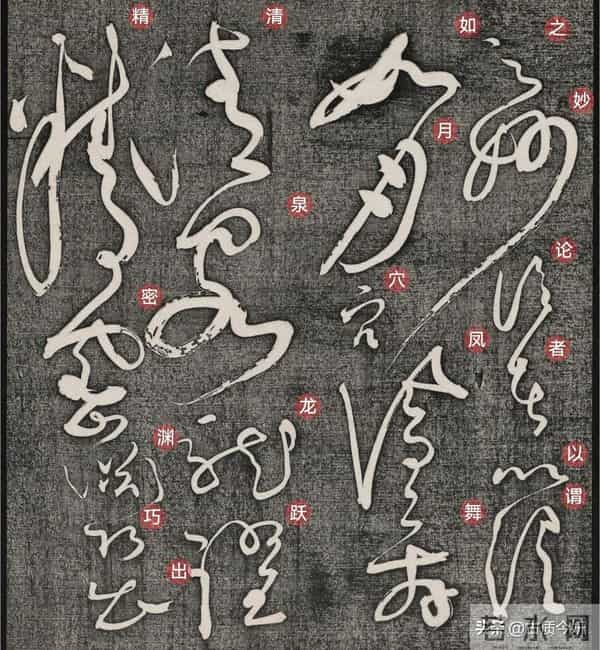 之妙论者以谓
如月穴凤舞
清泉龙跃
精密渊巧出
头条 @古质今妍